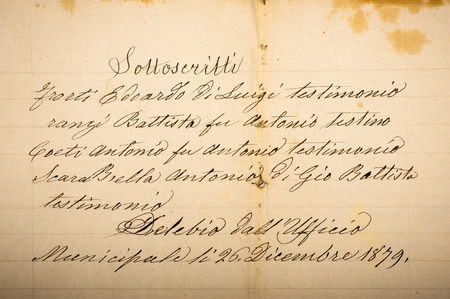 Sottoscritti
Frorti Edoardo di Luigi testimonio
ranzi Battista fu Antonio testimo
Coeti Antonio fu Antonio testimonio
Scarabrella Antonio di Gio Battista
testimonio
Delebio dall'Ufficio
Municipale li 26. Dicembre 1879.